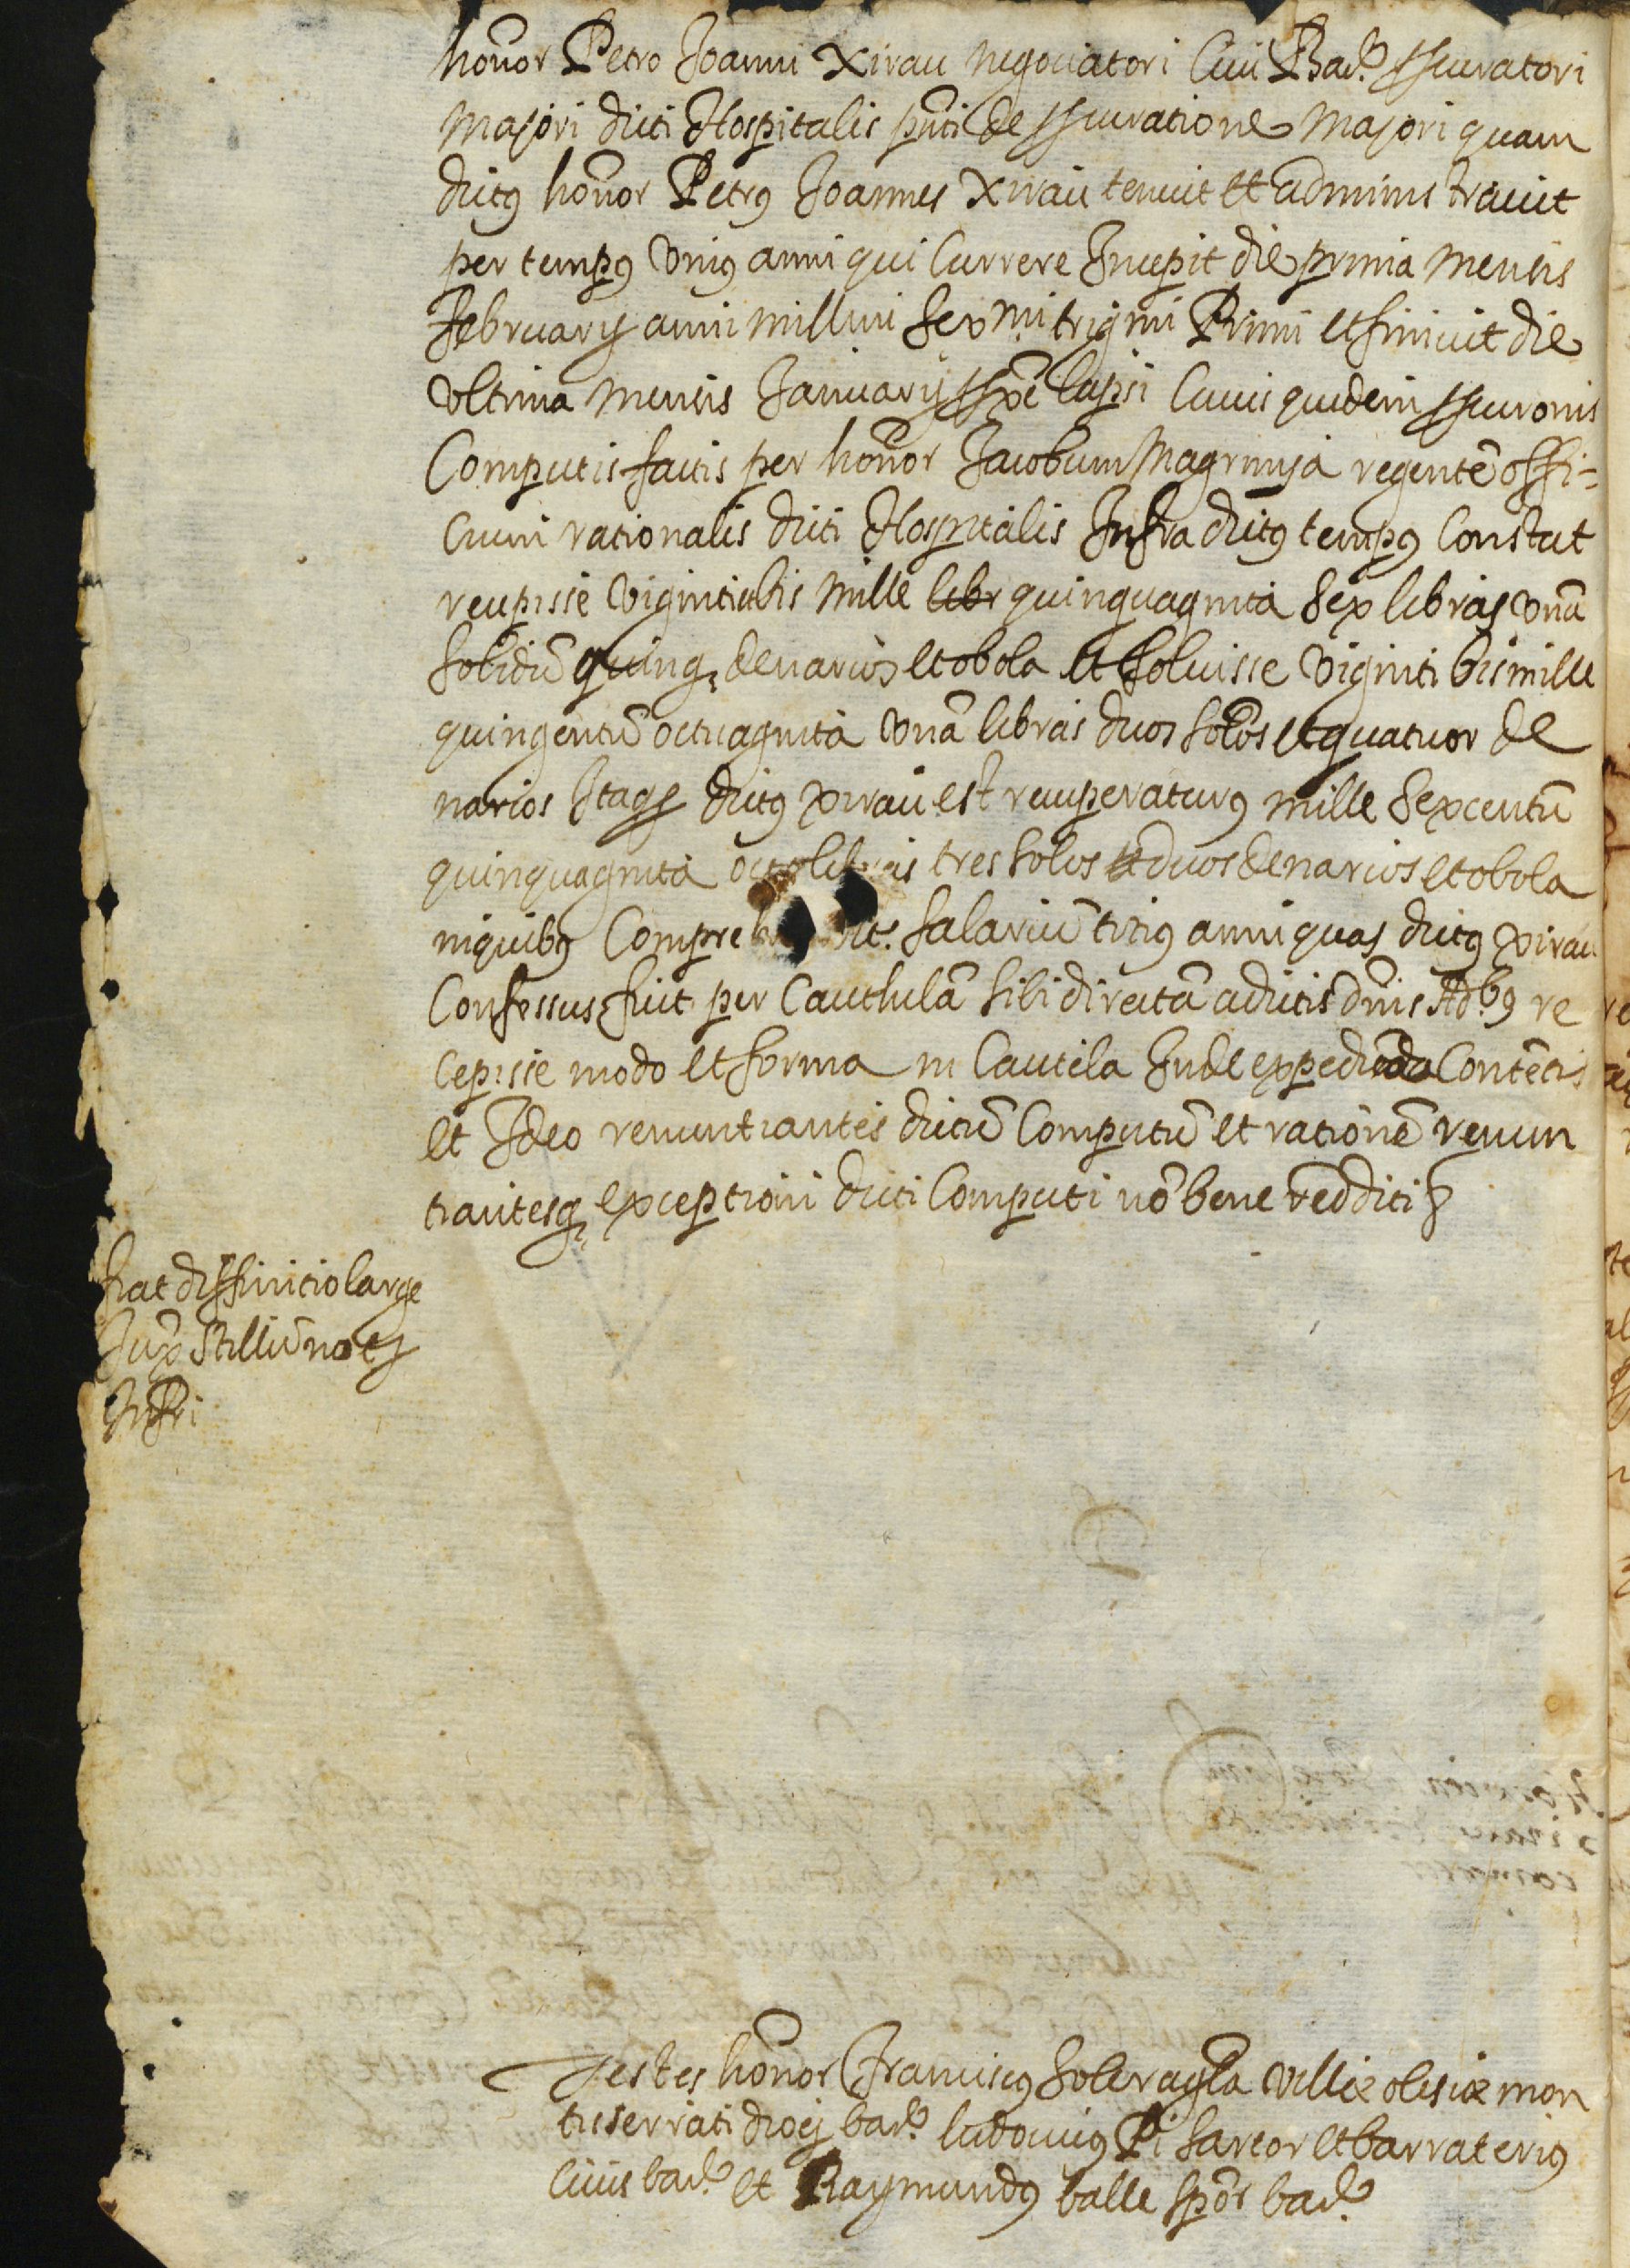 honor Petro Joanni Xirau negociatori Civi Bar.e procuratori
Majori dicti Hospitalis pnti de procuratione Majori quam
dictus honor Petrus Joannes Xirau tenuit et administravit
per tempus unius anni qui Currere Incepit die prima mensis
February anni millmi sexmi trigmi Primi et finivit die
ultima mensis January px̄e lapsi Cuius quidem procuronis
Computis factis per honor Jacobum Magrinya regentē offi=
cium rationalis dicti Hospitalis Infra dictus tempus Constat
recepisse viginti bis mille libr quinquaginta sex libras unā
solidū quinq denarios et obola et soluisse viginti bis mille
quingentū octuaginta unā libras duos solōs et quatuor de
narios Itaq dictus xirau est recuperaturus mille sexcentū
quinquaginta octo libras tres solos et duos denarios et obola
in quibus Compre salariū anni quas dictus xirau
Confessus fuit per Cauthulā sibi directā a dictis dnis Adbus re
cepisse modo et forma in Cautela Inde expedienda Contētis
et Ideo renuntiantes dictū Computū et rationē renun
tiantesq exceptioni dicti Computi nō bene redditi
fiat diffinitio large
Jux stillū not
Testes honor Franciscus Solervila ville olesie mon
tisserrati dioc bare Ludovicus Pi sartor et barraterius
civis bare et Raymundus balle spōr bare